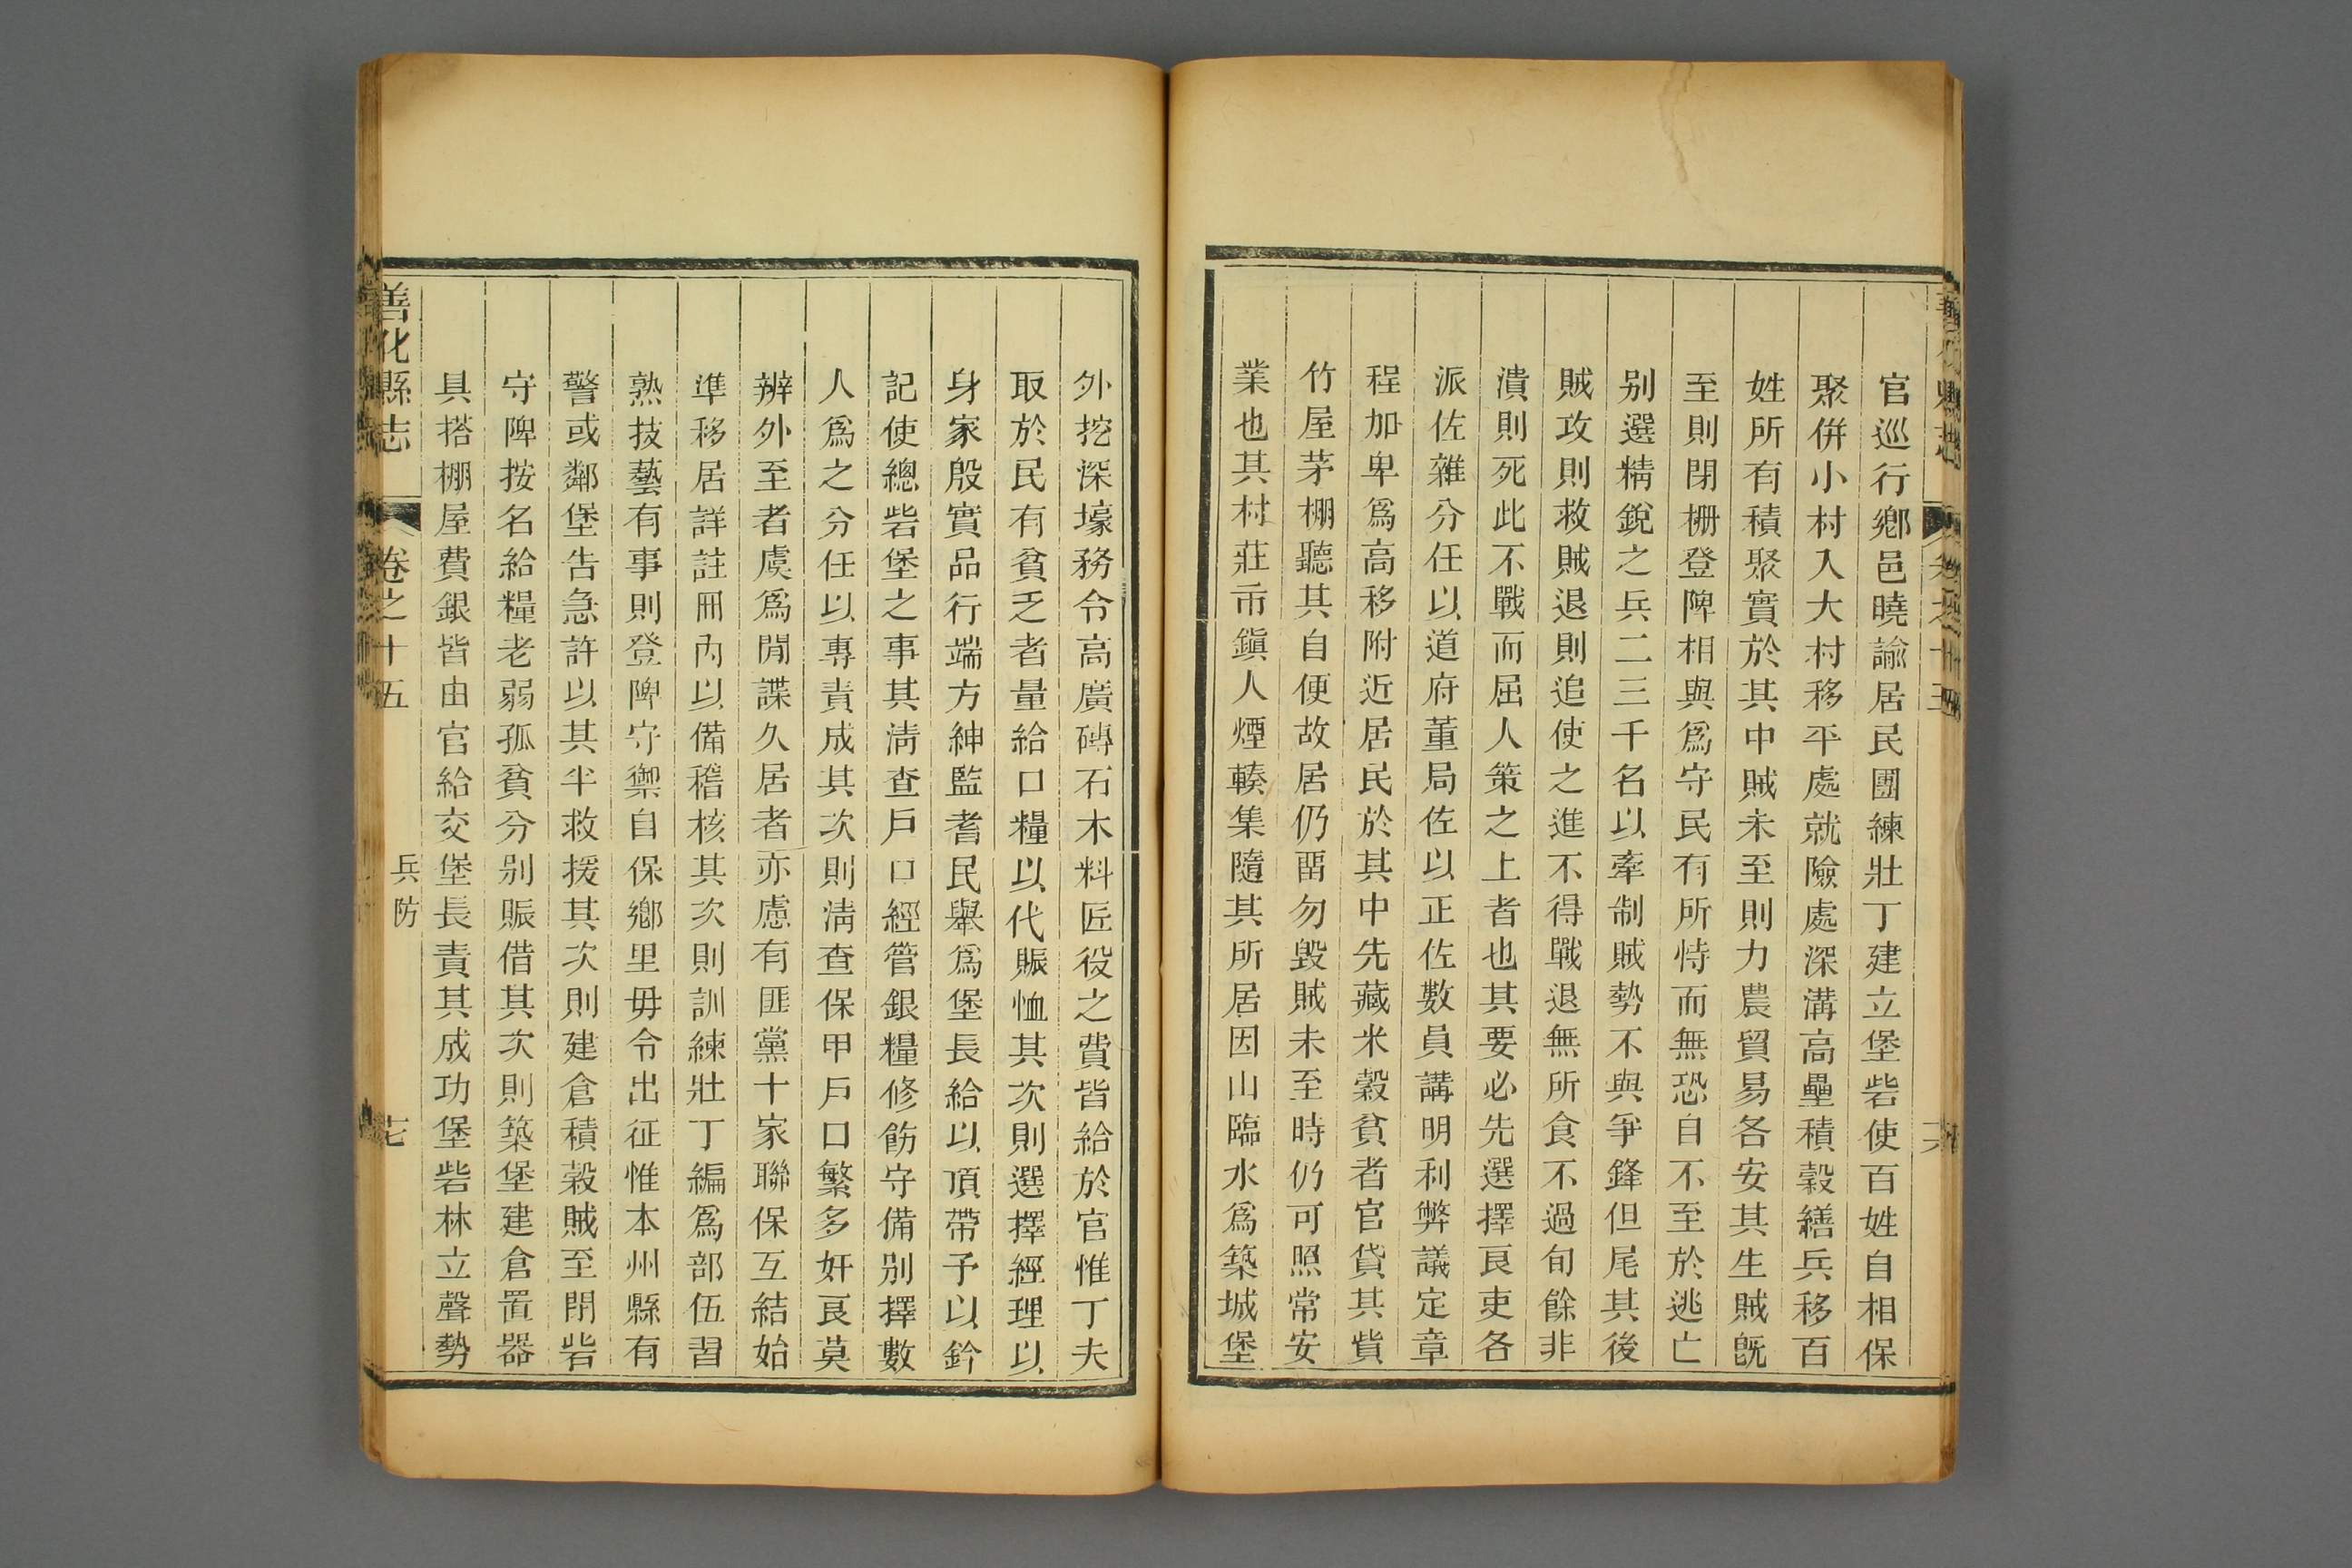 官巡行鄉邑曉諭居民團練壯丁建立堡砦使百姓自相保
聚併小村入大村移平處就險處深溝高壘積穀繕兵移百
姓所有積聚實於其中賊未至則力農貿易各安其生賊旣
至則閉柵登陴相與爲守民有所恃而無恐自不至於逃亡
别選精銳之兵二三千名以牽制賊勢不與爭鋒但尾其後
賊攻則救賊退則追使之進不得戰退無所食不過旬餘非
潰則死此不戰而屈人策之上者也其要必先選擇良吏各
派佐雜分任以道府董局佐以正佐數員講明利弊議定章
程加卑爲高移附近居民於其中先藏米穀貧者官貸其貲
竹屋茅棚聽其自便故居仍畱勿毀賊未至時仍可照常安
業也其村莊市鎭人煙輳集隨其所居因山臨水爲築城堡
外挖深壕務令高廣磚石木料匠役之費皆給於官惟丁夫
取於民有貧乏者量給口糧以代賑恤其次則選擇經理以
身家殷實品行端方紳監耆民舉爲堡長給以頂帶予以鈐
記使總砦堡之事其淸查戶口經管銀糧修飭守備别擇數
人爲之分任以專責成其次則淸查保甲戶口繁多奸良莫
辨外至者虞爲閒諜久居者亦慮有匪黨十家聯保互結始
準移居詳註冊內以備稽核其次則訓練壯丁編爲部伍習
熟技藝有事則登陴守禦自保鄉里毋令出征惟本州縣有
警或鄰堡吿急許以其半救援其次則建倉積穀賊至閉砦
守陴按名給糧老弱孤貧分别賑借其次則築堡建倉置器
具搭棚屋費銀皆由官給交堡長責其成功堡砦林立聲勢
善化縣志 卷之十五 兵防 七